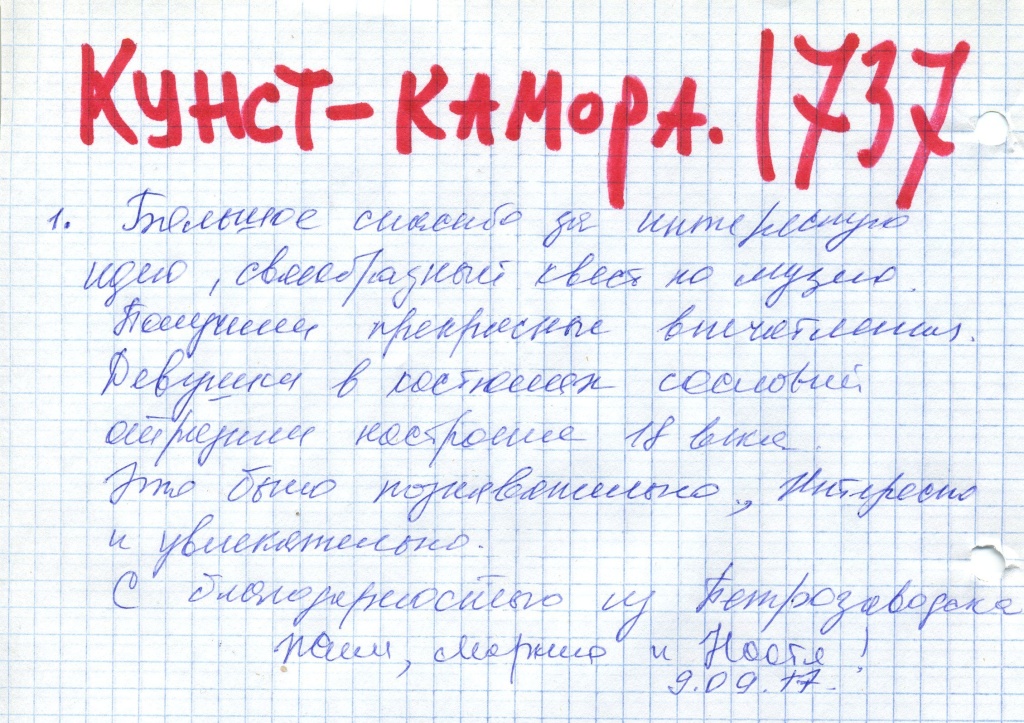 КУНСТ-КАМОРА. 1737
1. Большое спасибо за интересную
идею, своеобразный квест по музею.
Получили прекрасные впечатления.
Девушки в костюмах сословий
отразили настроение 18 века.
Это было познавательно, интересно
и увлекательно.
С благодарностью из Петрозаводска
и Настя!
9.09.17.